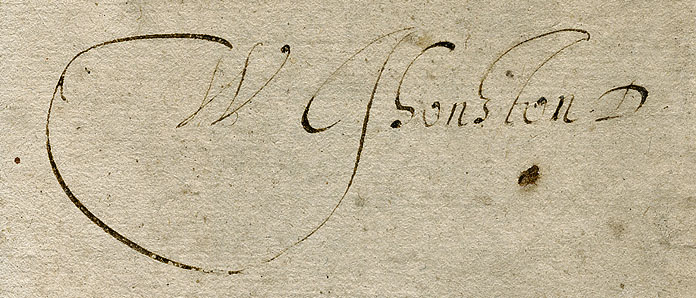 W Jhonston D